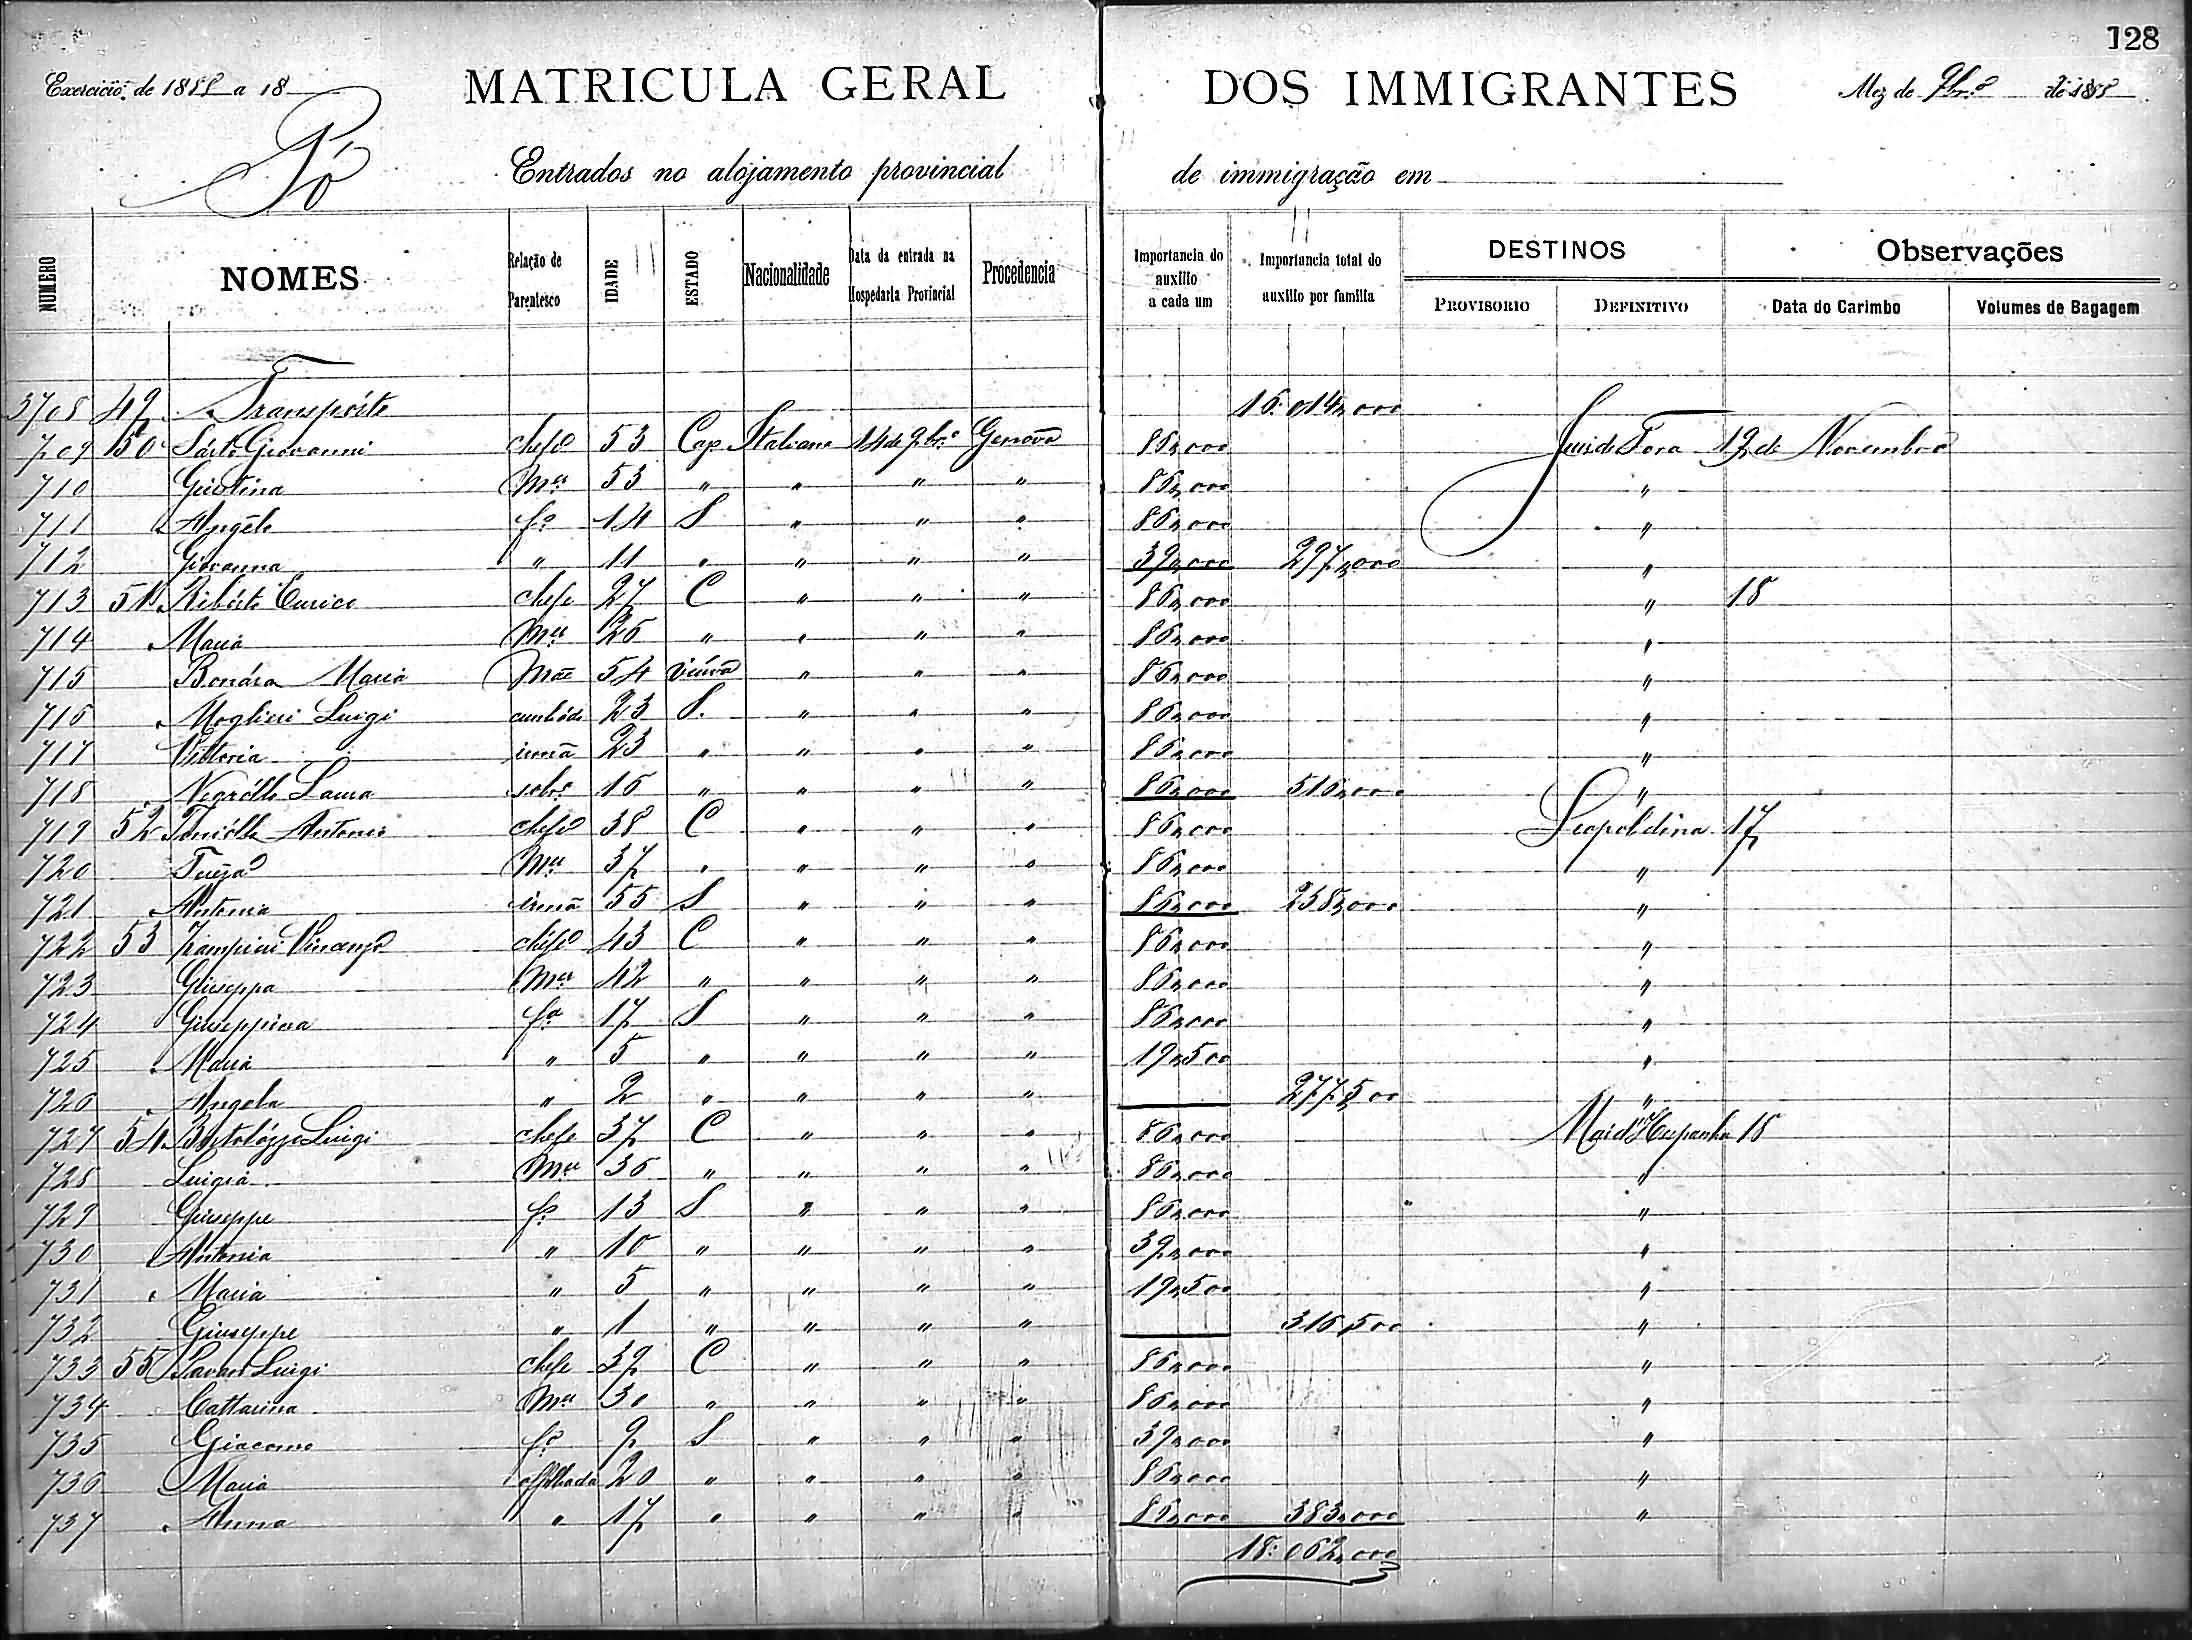 128
Exercicio de 1888 a 18
MATRICULA GERAL DOS IMMIGRANTES
Mez de 9br.o de 1888
Pó
Entrados no alojamento provincial de immigração em
NUMERO NOMES Relação de Parentesco IDADE ESTADO Nacionalidade Data da entrada na Hospedaria Provincial Procedencia Importancia do auxilio a cada um Importancia total do auxilio por familia DESTINOS PROVISORIO DEFINITIVO Observações Data do Carimbo Volumes de Bagagem
3708 49 Transporte 16:014,000
709 50 Giovanni chefe 53 Cas Italiana 14 de 9br.o Genova 86,000 Juiz de Fora 19 de Novembro
710 Giustina Mer 53 " " " " 86,000 "
711 Angelo fo 14 S " " " 86,000 "
712 Giovanna " 11 " " " " 39,000 297,000 "
713 51 Enrico chefe 27 C " " " 86,000 " 18
714 Maria Mer 26 " " " " 86,000 "
715 Maria Mãe 54 viúva " " " 86,000 "
716 Luigi 23 S. " " " 86,000 "
717 Vittoria irmã 23 " " " " 86,000 "
718 Laura sobra 16 " " " " 86,000 516,000 "
719 52 Toniólli Antonio chefe 38 C " " " 86,000 Leopoldina 17
720 Mer 37 " " " " 86,000 "
721 Antonia irmã 55 S " " " 86,000 258,000 "
722 53 Zampieri Vincenzo chefe 43 C " " " 86,000 "
723 Giuseppa Mer 42 " " " " 86,000 "
724 Giuseppina fa 17 S " " " 86,000 "
725 Maria " 5 " " " " 19,500 "
726 Angela " 2 " " " " 277,500 "
727 54 Bortolózzo Luigi chefe 37 C " " " 86,000 Mar d'Hespanha 18
728 Luigia Mer 36 " " " " 86,000 "
729 Giuseppe fo 13 S " " " 86,000 "
730 Antonia " 10 " " " " 39,000 "
731 Maria " 5 " " " " 19,500 "
732 Giuseppe " 1 " " " " 316,500 "
733 55 Pavan Luigi chefe 39 C " " " 86,000 "
734 Cattarina Mer 30 " " " " 86,000 "
735 Giacomo fo 9 S " " " 39,000 "
736 Maria affilhada 20 " " " " 86,000 "
737 Anna " 17 " " " " 86,000 383,000 "
18:062,000